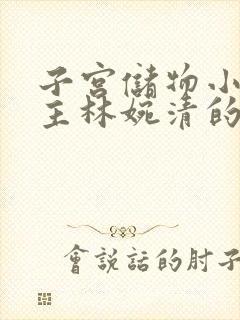 子宮儲物小
主林婉清的
會說話的肘子